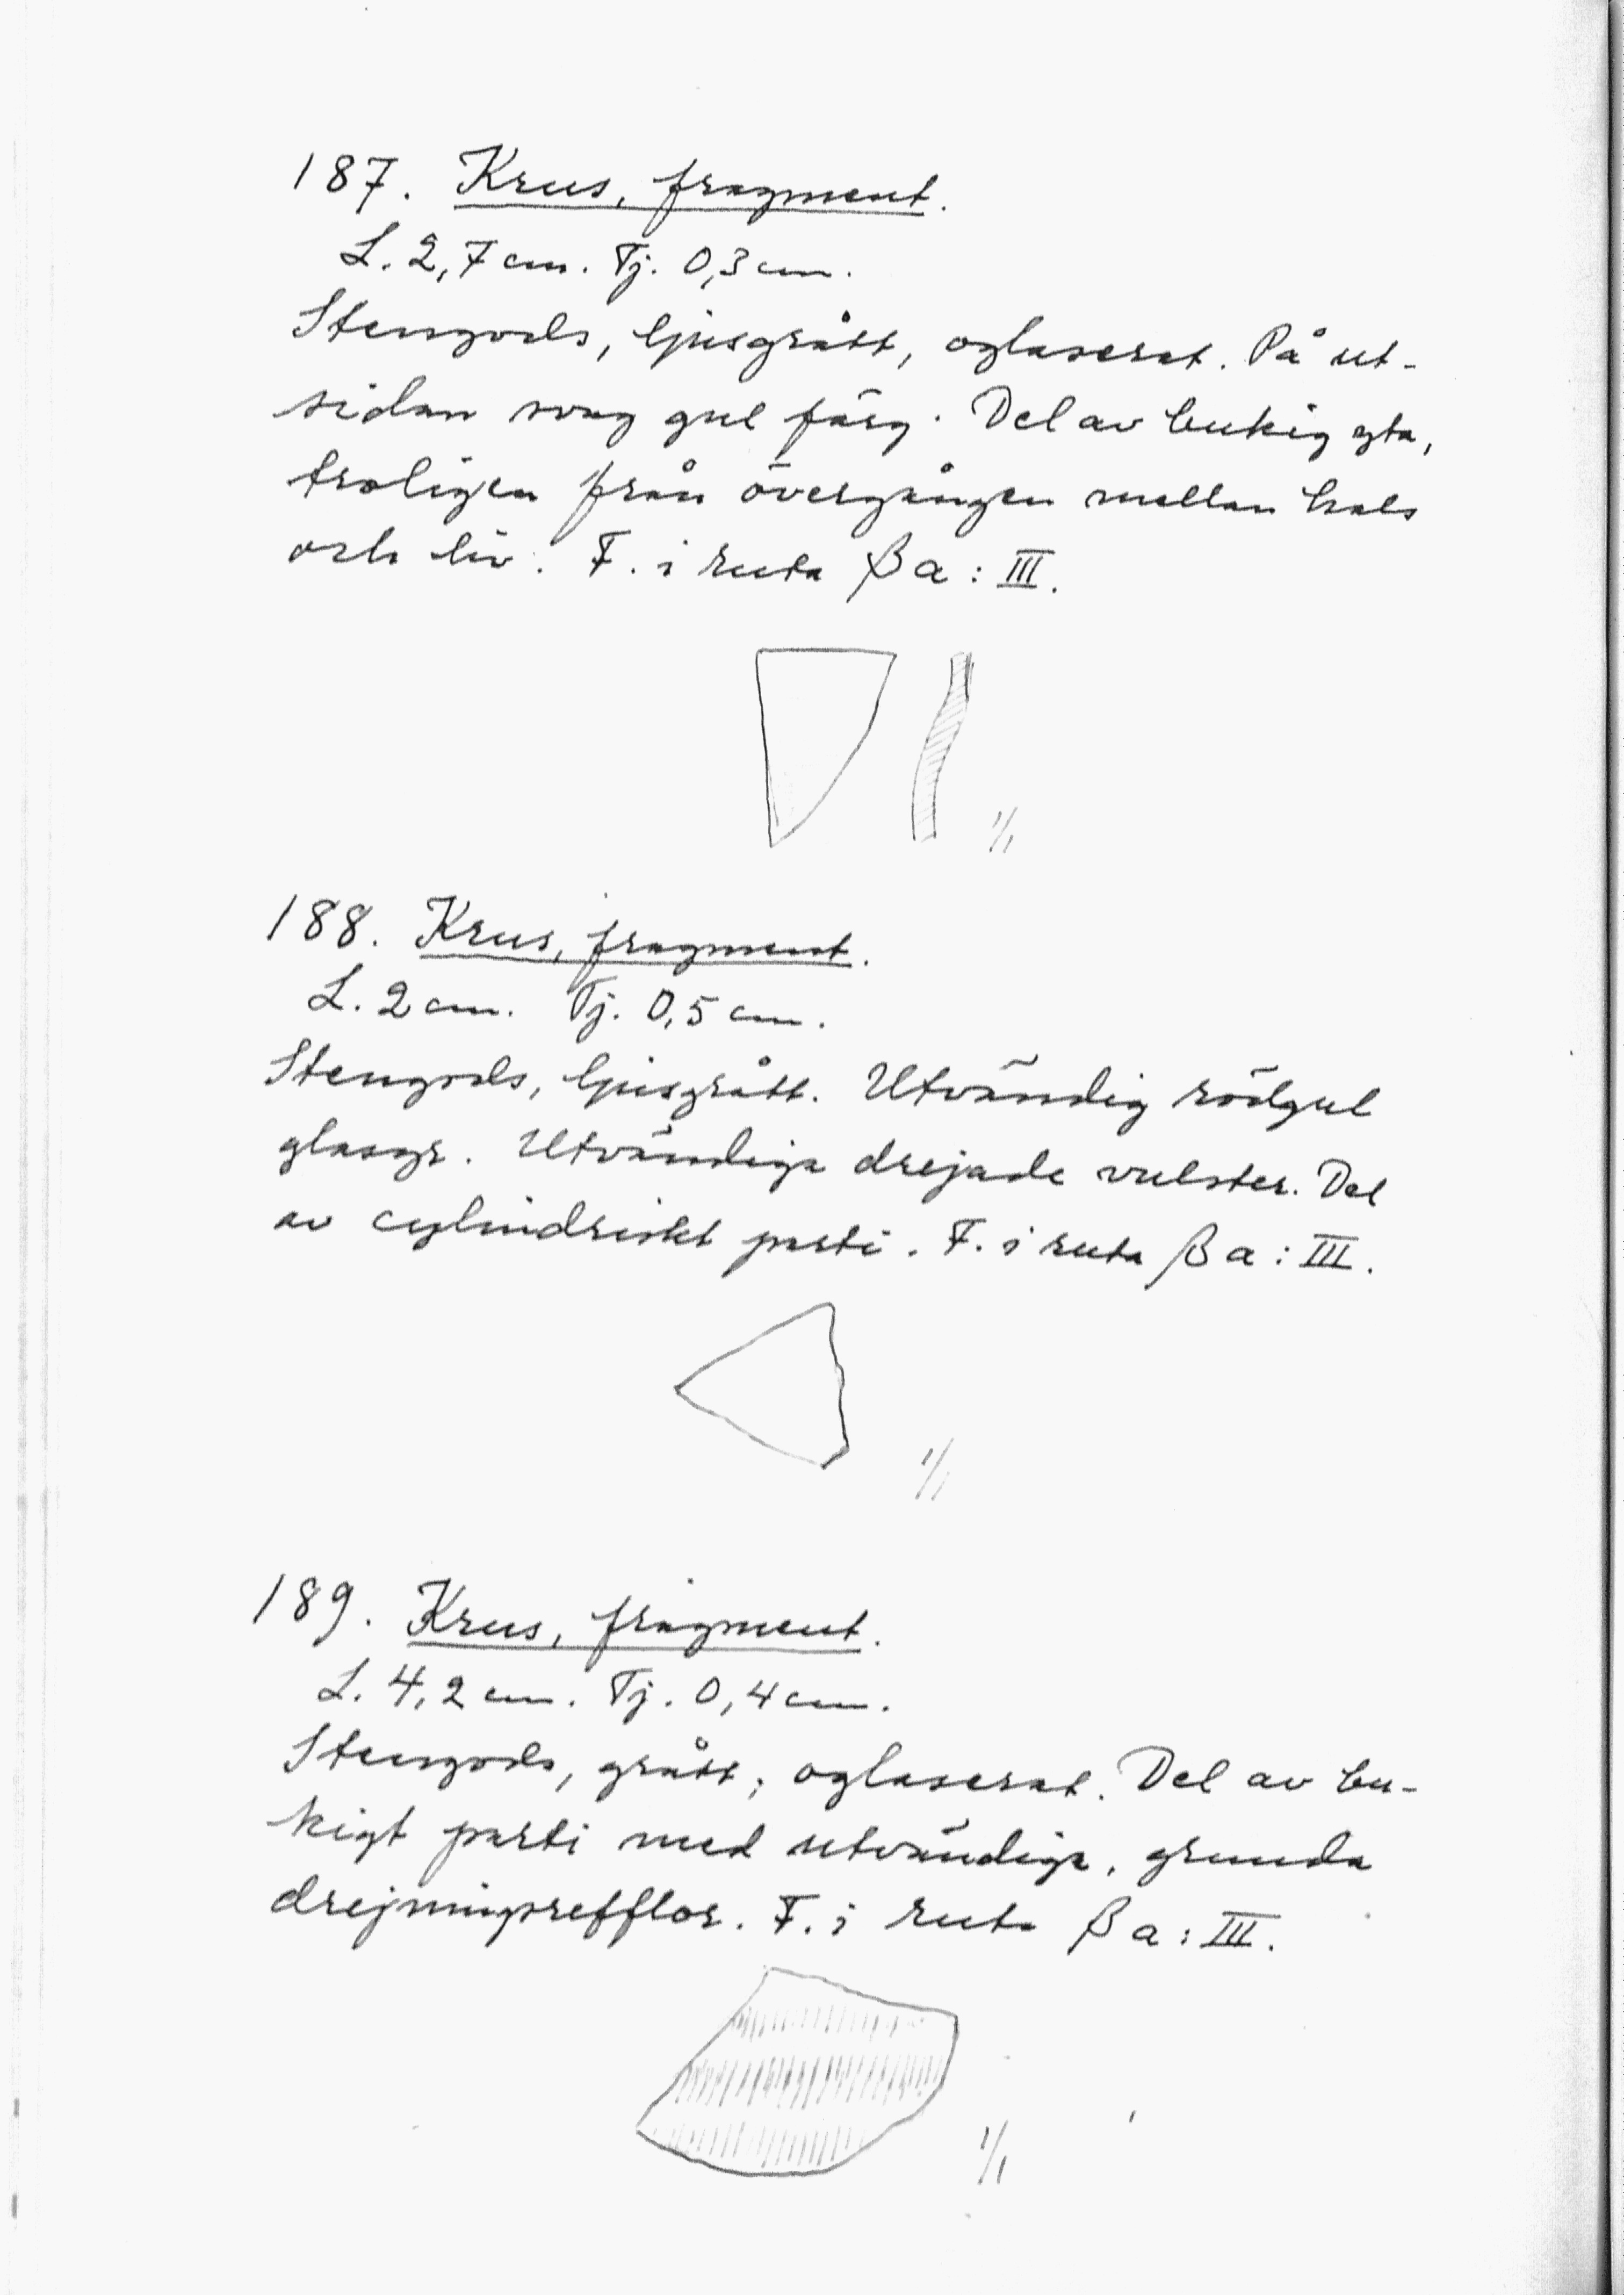 187. Krus, fragment.
L. 2,7 cm. Tj. 0,3 cm.
Stengods, ljusgrått, oglaserat. På ut-
sidan svag gul färg. Del av bukig yta,
troligen från övergången mellan hals
och liv. F. i ruta βa: III.
1/1
188. Krus, fragment.
L. 2 cm. Tj. 0,5 cm.
Stengods, ljusgrått. Utvändig rödgul
glasyr. Utvändiga drejade vulster. Del
av cylindriskt parti. F. i ruta βa: III.
1/1
189. Krus, fragment.
L. 4,2 cm. Tj. 0,4 cm.
Stengods, grått, oglaserat. Del av bu-
kigt parti med utvändiga, grunda
drejningsrefflor. F. i ruta βa: III.
1/1